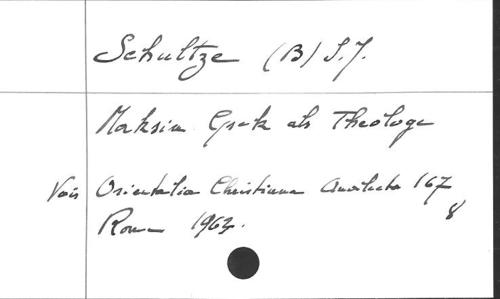 Schultze (B) S.J.
Maksim Grek als Theologe
Voir Orientalia Christiana Analecta 167
8
Rome 1963.